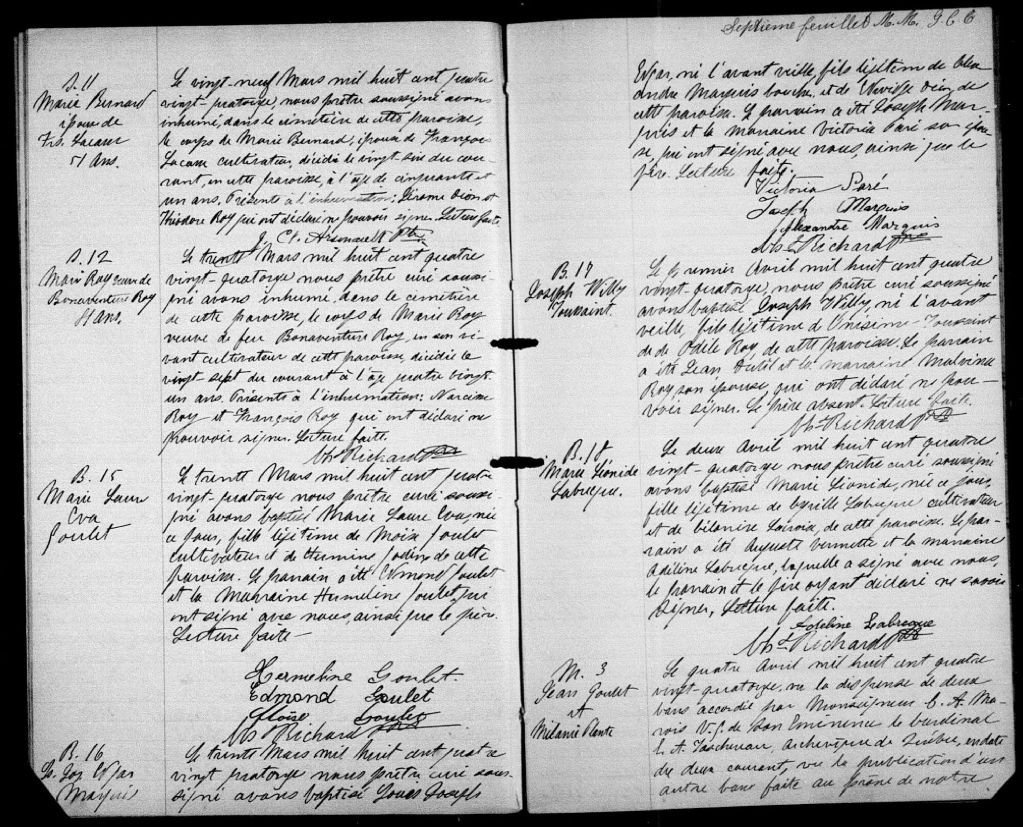 S. 11
Marie Bernard
épouse de
Frs. Lacasse
51 Ans.
Le vingt-neuf Mars mil huit cent quatre
vingt-quatorze, nous prêtre soussigné avons
inhumé, dans le cimetière de cette paroisse,
le corps de Marie Bernard, épouse de François
Lacasse cultivateur, décédée le vingt-six du cou-
rant, en cette paroisse, à l'âge de cinquante et
un ans. Présents à l'inhumation: Jérome Dion et
Théodore Roy qui ont déclaré ne pouvoir signer. Lecture faite.
J. Cl. Arsenault Ptre
S. 12
Marie Roy veuve de
Bonaventure Roy
81 ans.
Le trente Mars mil huit cent quatre
vingt-quatorze nous prêtre curé soussi-
gné avons inhumé dans le cimetière
de cette paroisse, le corps de Marie Roy
veuve de feu Bonaventure Roy, en son vi-
vant cultivateur de cette paroisse, décédée le
vingt-sept du courant à l'âge quatre vingt
un ans. Présents à l'inhumation: Narcisse
Roy et François Roy qui ont déclaré ne
pouvoir signer. Lecture faite.
Richard Ptre
B. 15
Marie Laure
Eva
Goulet
Le trente Mars mil huit cent quatre
vingt-quatorze nous prêtre curé soussi-
gné avons baptisé Marie Laure Eva, née
ce jour, fille légitime de Moïse Goulet
Cultivateur et de Hermine Jodin de cette
paroisse. Le parrain a été Edmond Goulet
et la Marraine Hermeline Goulet, qui
ont signé avec nous, ainsi que le père.
Lecture faite -
Hermeline Goulet.
Edmond Goulet
Moise Goulet
Richard Ptre
B. 16
Ls. Jos. Edgar
Marquis
Le trente Mars mil huit cent quatre
vingt quatorze nous prêtre curé sous-
signé avons baptisé Louis Joseph
Septième feuillet M. M. G. C. C
Edgar, né l'avant veille, fils légitime de Alex-
andre Marquis boucher, et de Elwidge Dion, de
cette paroisse. Le parrain a été Joseph Mar-
quis et la marraine Victoria Paré son épou-
se, qui ont signé avec nous, ainsi que le
père. Lecture faite.
Victoria Paré
Joseph Marquis
Alexandre Marquis
Richard Ptre
B. 17
Joseph Willy
Toussaint.
Le premier Avril mil huit cent quatre
vingt-quatorze, nous prêtre curé soussigné
avons baptisé Joseph Willy, né l'avant
veille, fils légitime d'Onésime Toussaint
et de Odile Roy de cette paroisse. Le parrain
a été Jean Dutil et la marraine Malvina
Roy son épouse, qui ont déclaré ne pou-
voir signer. Le père absent. Lecture faite.
Richard Ptre
B. 18
Marie Léonide
Labrecque.
Le deux Avril mil huit cent quatre
vingt-quatorze nous prêtre curé soussigné
avons baptisé Marie Léonide, née ce jour,
fille légitime de Cyrille Labrecque cultivateur
et de Célanire Lacroix, de cette paroisse. Le par-
rain a été Auguste Vermette et la marraine
Adéline Labrecque, laquelle a signé avec nous,
le parrain et le père ayant déclaré ne savoir
signer, Lecture faite.
Adeline Labrecque
Richard Ptre
M. 3
Jean Goulet
et
Mélanie Plante
Le quatre Avril mil huit cent quatre
vingt-quatorze, vu la dispense de deux
bans accordée par Monseigneur C. A. Ma-
rois V. G. de Son Eminence le Cardinal
E. A. Taschereau, Archevêque de Québec, en date
du deux courant, vu la publication d'un
autre banc faite au prône de notre